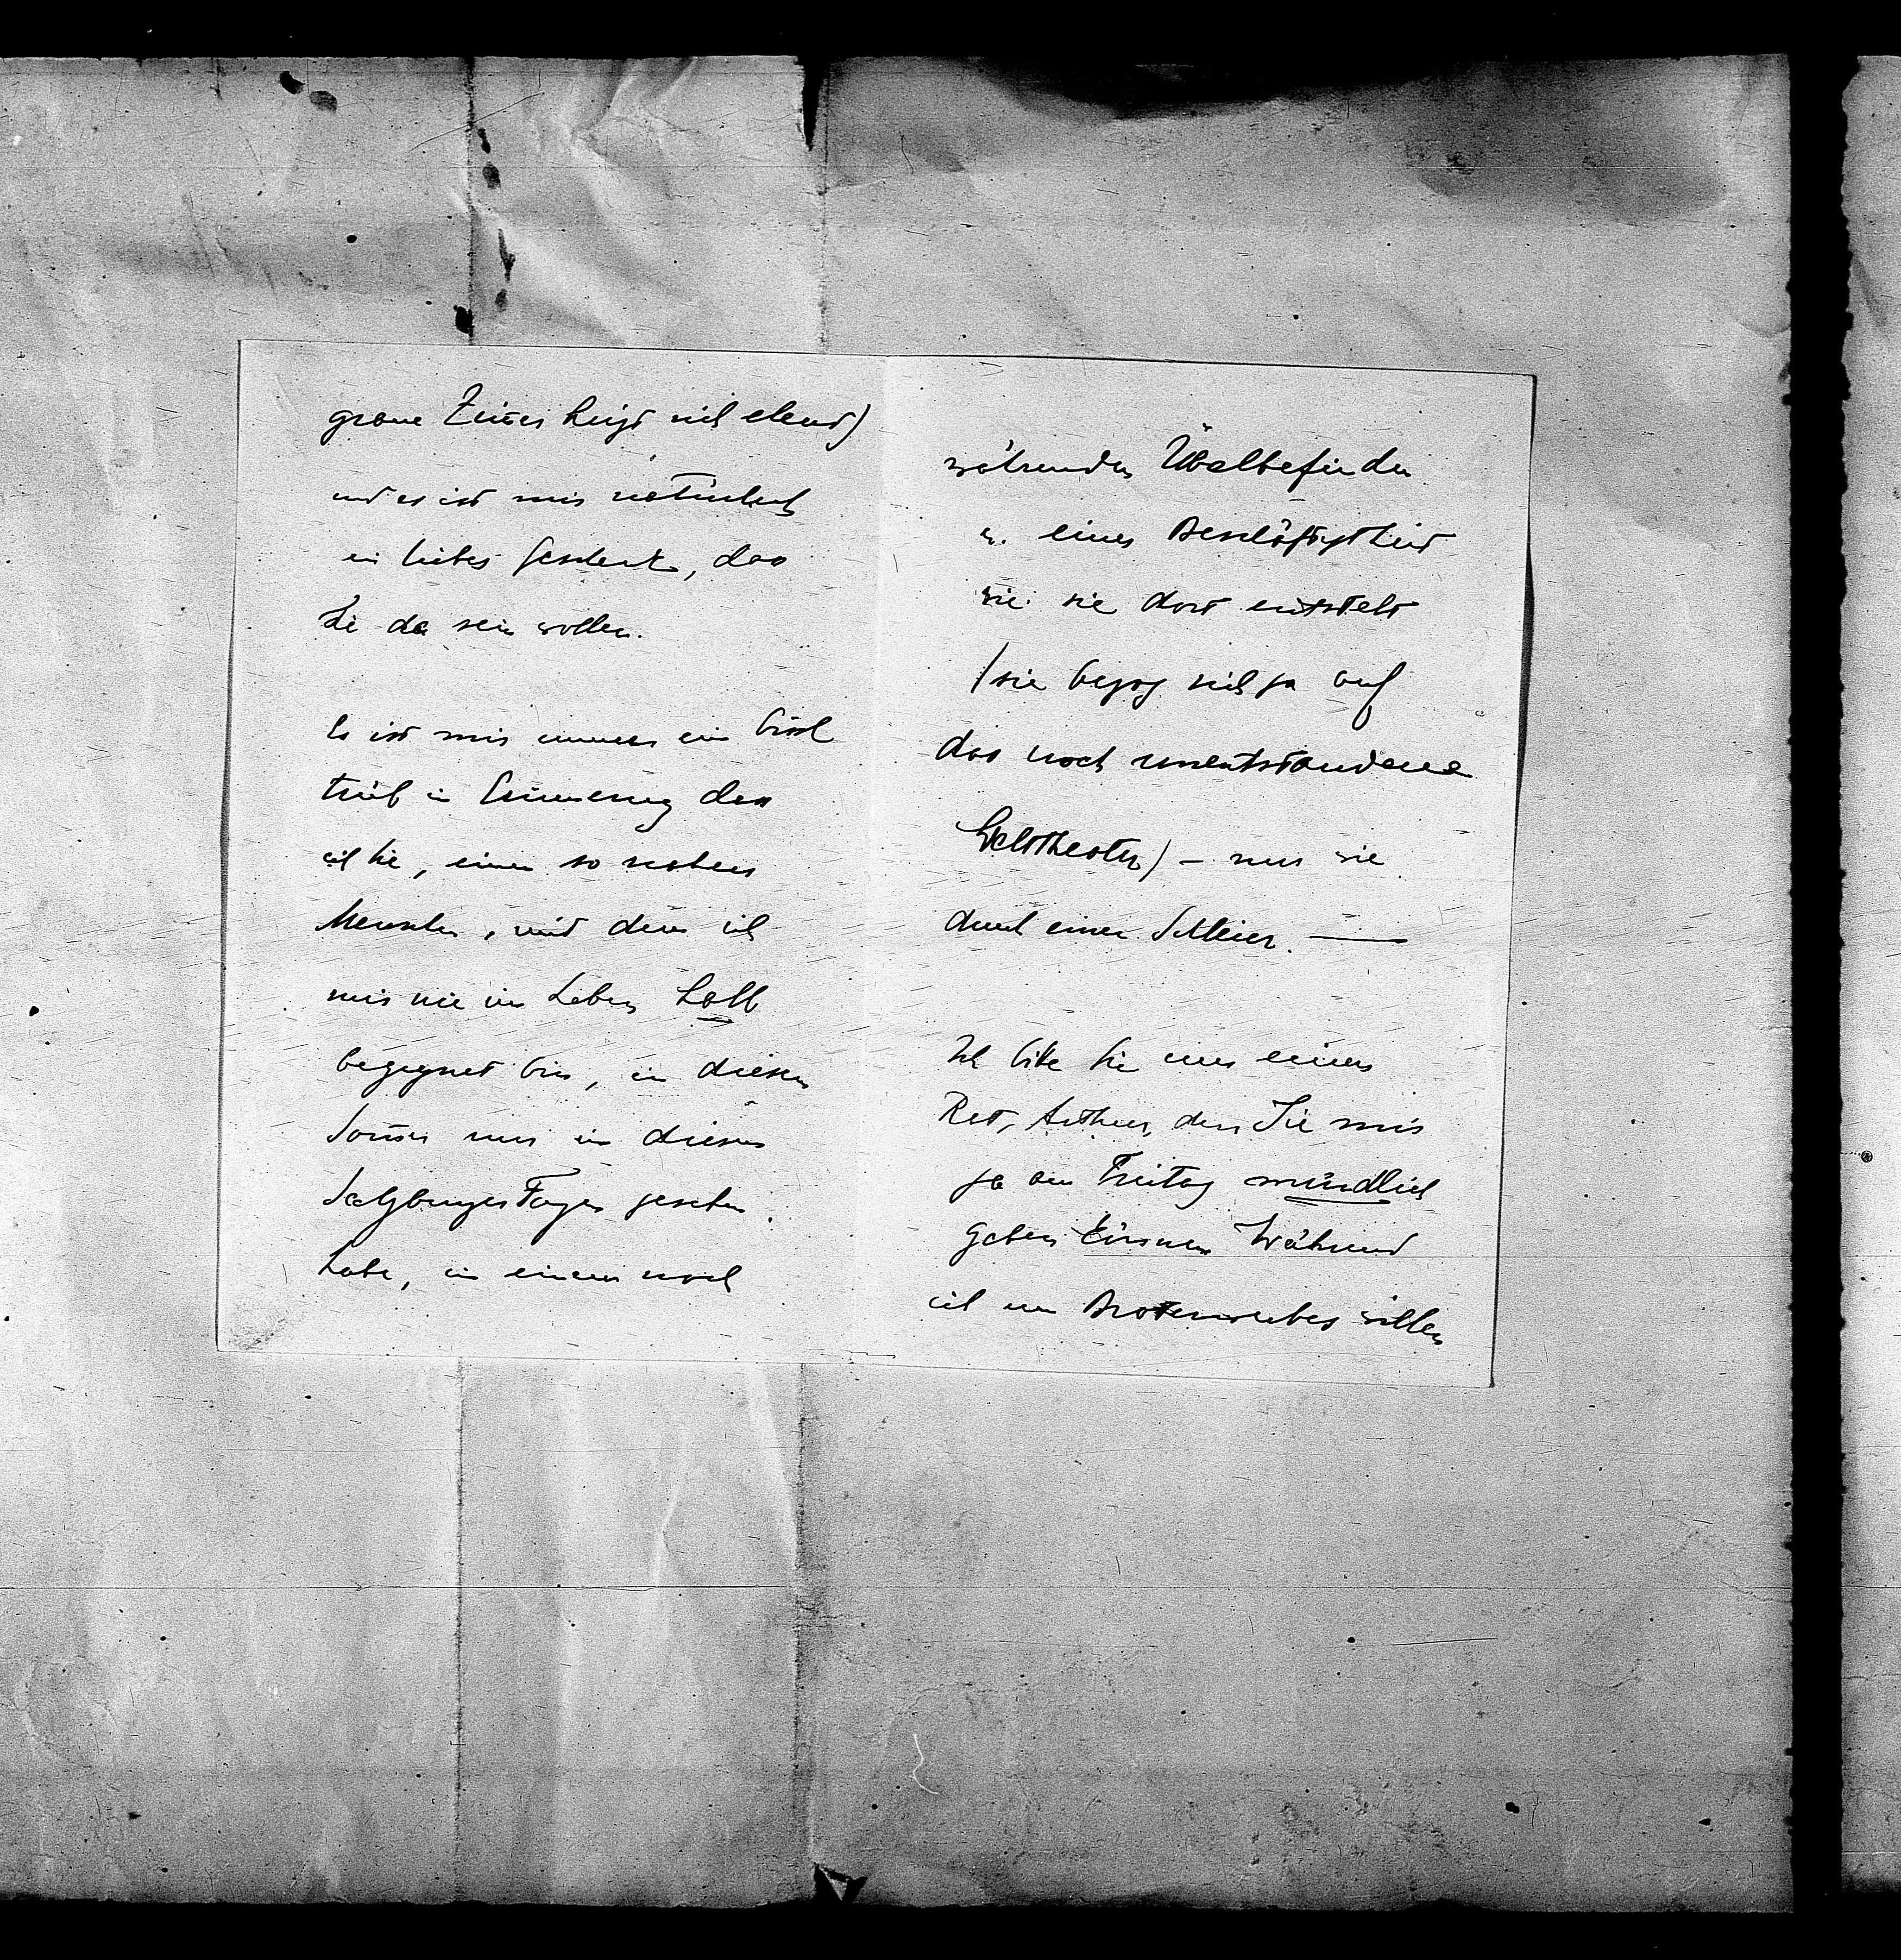 graue Zimer hinzt sich elend)
und es ist mir natürlich
ein liebes Geschenk, das
Sie da sein wollen.
Es ist mir immer ein bissl
trüb in Erinnerung dass
ich Sie, einen so nahen
Menschen, mit dem ich
mir nie im Leben halb
begegnet bin, in diesem
Somer nur in diesen
Salzburger Tagen gesehen
habe, in einem noch
währenden Übelbefinden
u. einer Beschäftigtheit
wie sie dort entsteht
(sie bezog sich ja auf
das noch unentstandene
Welttheater) – nur wie
durch einen Schleier. —
Ich bitte Sie um einen
Rat, Arthur, den Sie mir
ja am Freitag mündlich
geben können Während
ich um Broterwerbes willen